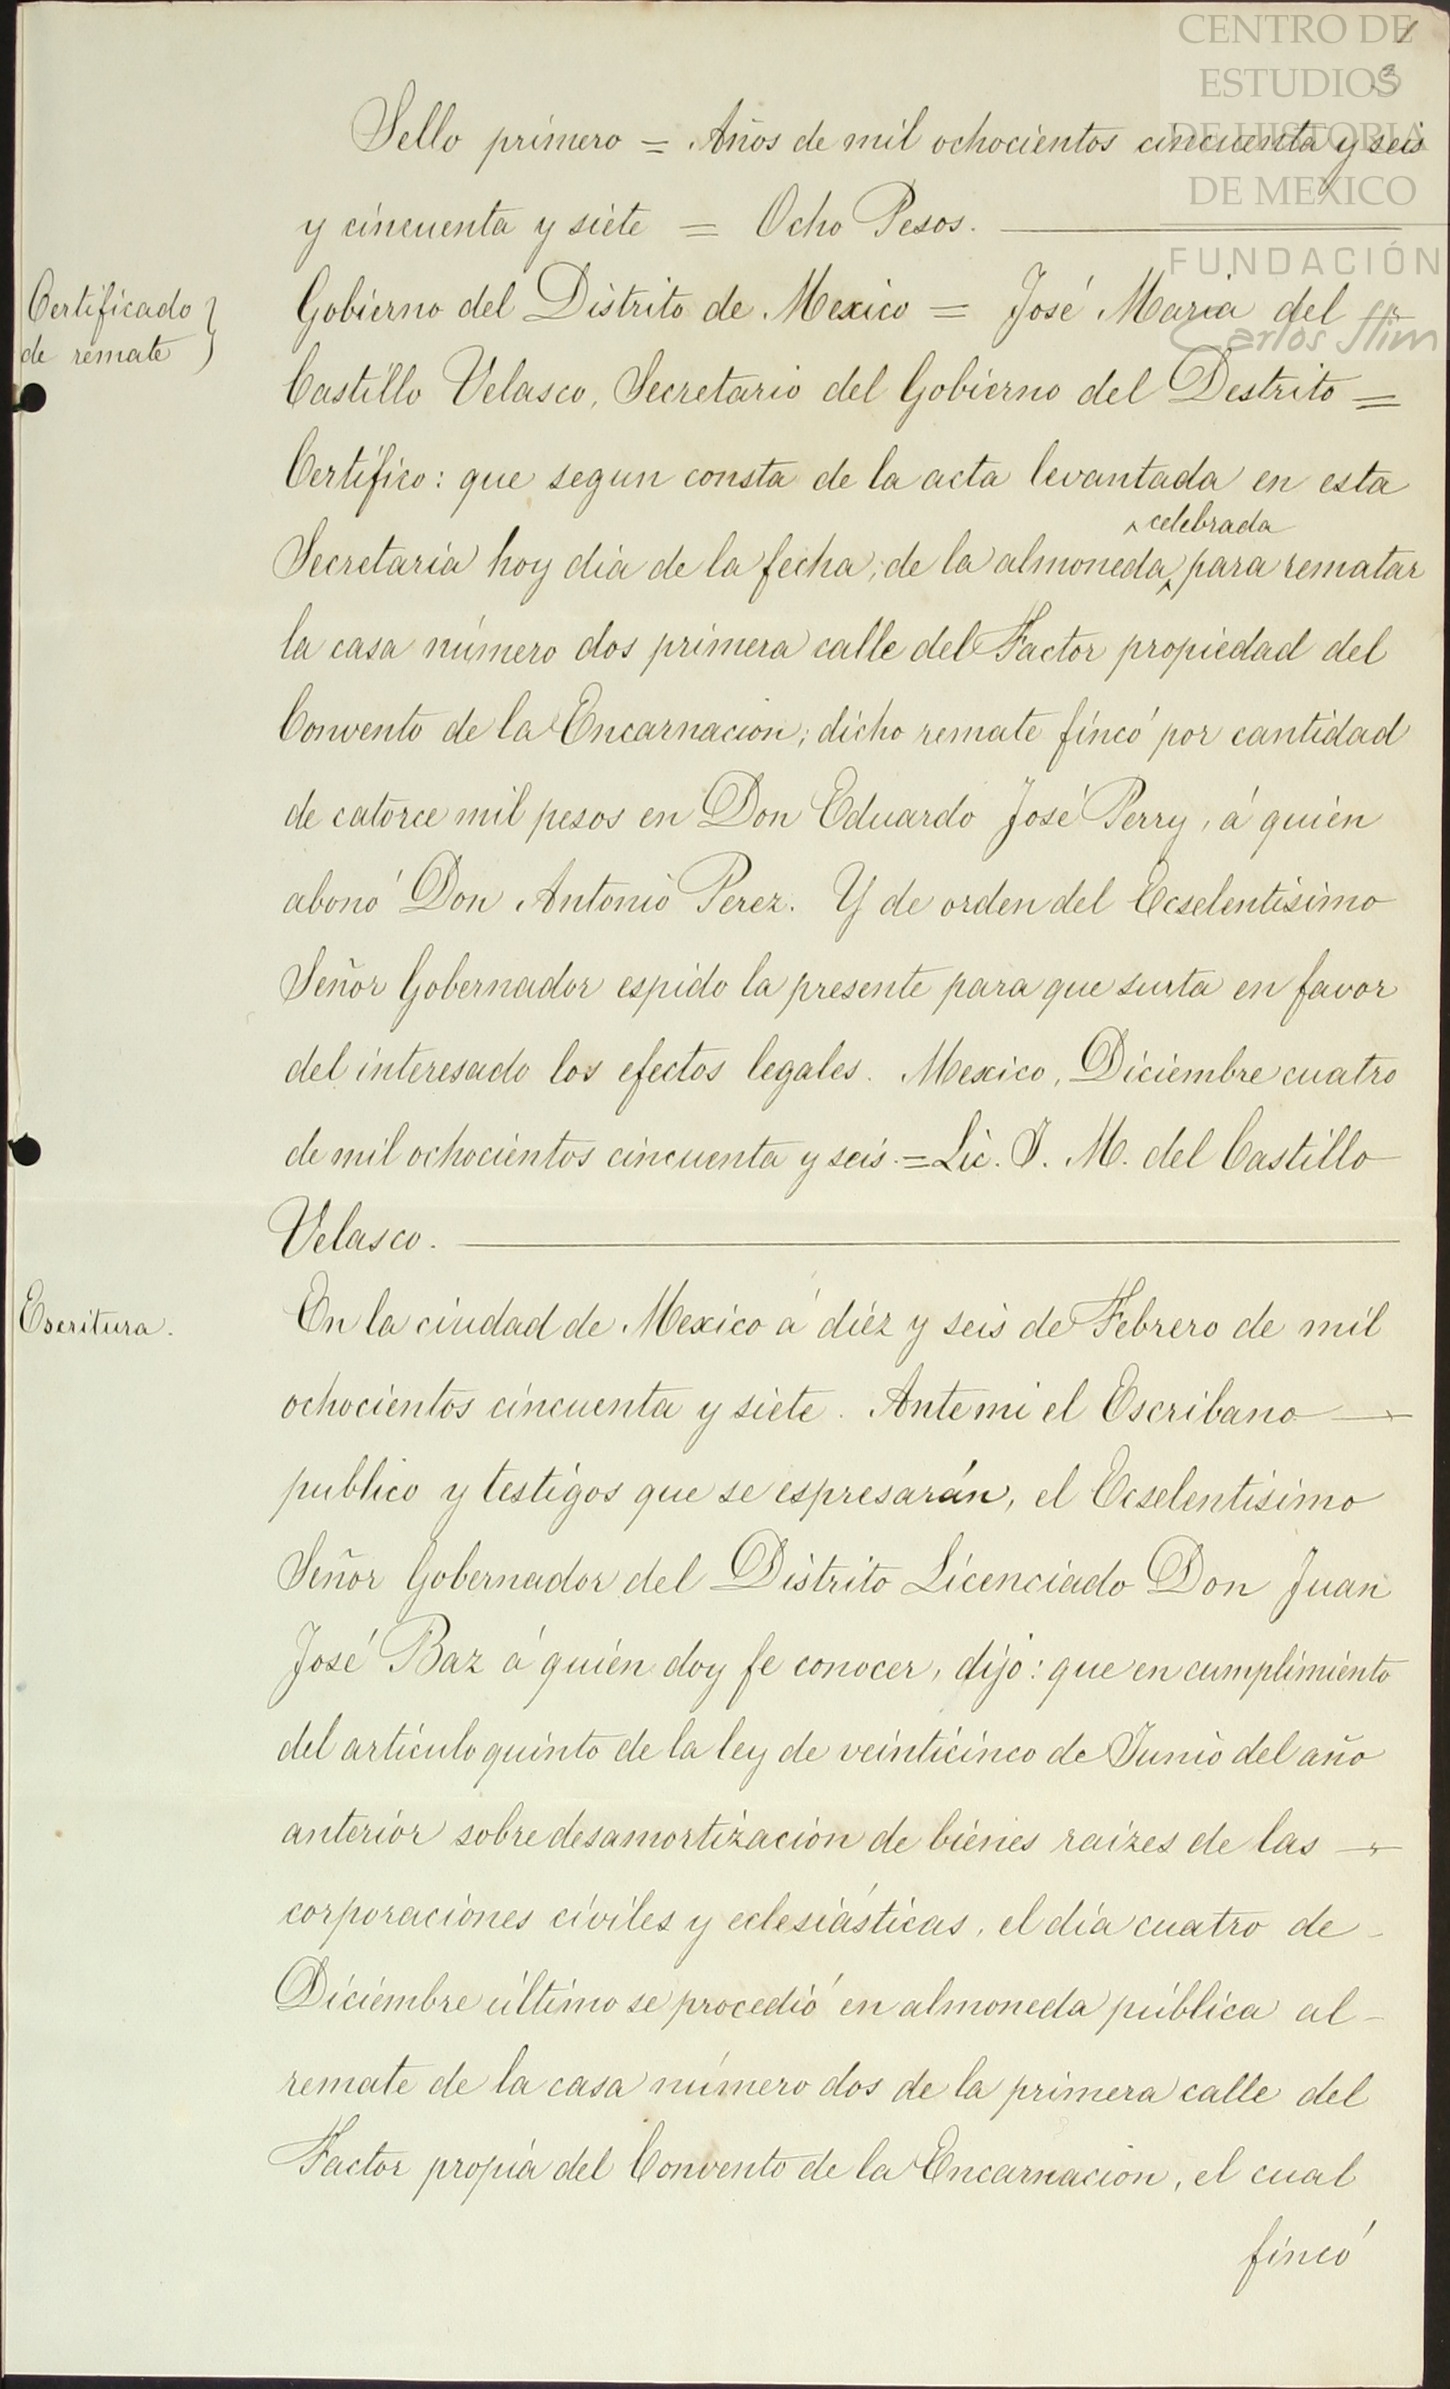 CENTRO DE
ESTUDIOS
DE HISTORIA
DE MEXICO
FUNDACIÓN
Carlos Slim
3
Sello primero = Años de mil ochocientos cincuenta y seis
y cincuenta y siete = Ocho Pesos.
Certificado
de remate
Gobierno del Distrito de Mexico = José Maria del
Castillo Velasco, Secretario del Gobierno del Destrito =
Certifico: que segun consta de la acta levantada en esta
celebrada
Secretaría hoy dia de la fecha, de la almoneda para rematar
la casa número dos primera calle del Factor propiedad del
Convento de la Encarnacion; dicho remate fincó por cantidad
de catorce mil pesos en Don Eduardo José Perry, á quien
abonó Don Antonio Perez. Y de orden del Ecselentisimo
Señor Gobernador espido la presente para que surta en favor
del interesado los efectos legales. Mexico, Diciembre cuatro
de mil ochocientos cincuenta y seis. = Lic. J. M. del Castillo
Velasco.
Escritura.
En la ciudad de Mexico á diéz y seis de Febrero de mil
ochocientos cincuenta y siete. Ante mi el Escribano
publico y testigos que se espresarán, el Ecselentisimo
Señor Gobernador del Distrito Licenciado Don Juan
José Baz á quien doy fe conocer, dijo: que en cumplimiento
del articulo quinto de la ley de veinticinco de Junio del año
anterior sobre desamortizacion de bienes raizes de las
corporaciones civiles y eclesiásticas, el día cuatro de
Diciembre último se procedió en almoneda pública al
remate de la casa número dos de la primera calle del
Factor propia del Convento de la Encarnacion, el cual
fincó